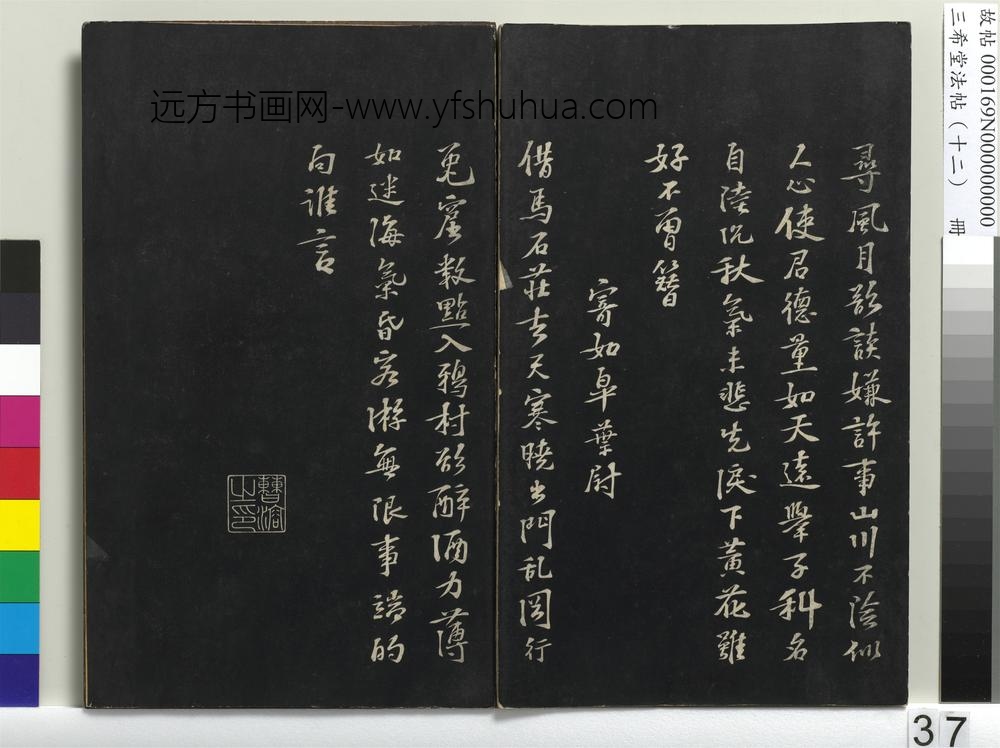 远方书画网-www.yfshuhua.com
故帖 000169N000000000
三希堂法帖（十二） 冊
尋風月欲談嫌許事山川不陰似
人心使君德量如天遠舉子科名
自陸沉秋氣未悲先淚下黃花雖
好不曾簪
寄如皋葉尉
借馬石莊去天寒曉出門乱岡行
兔窟數點入鴉村欲醉酒力薄
如迷海氣昏客游無限事端的
向誰言
37